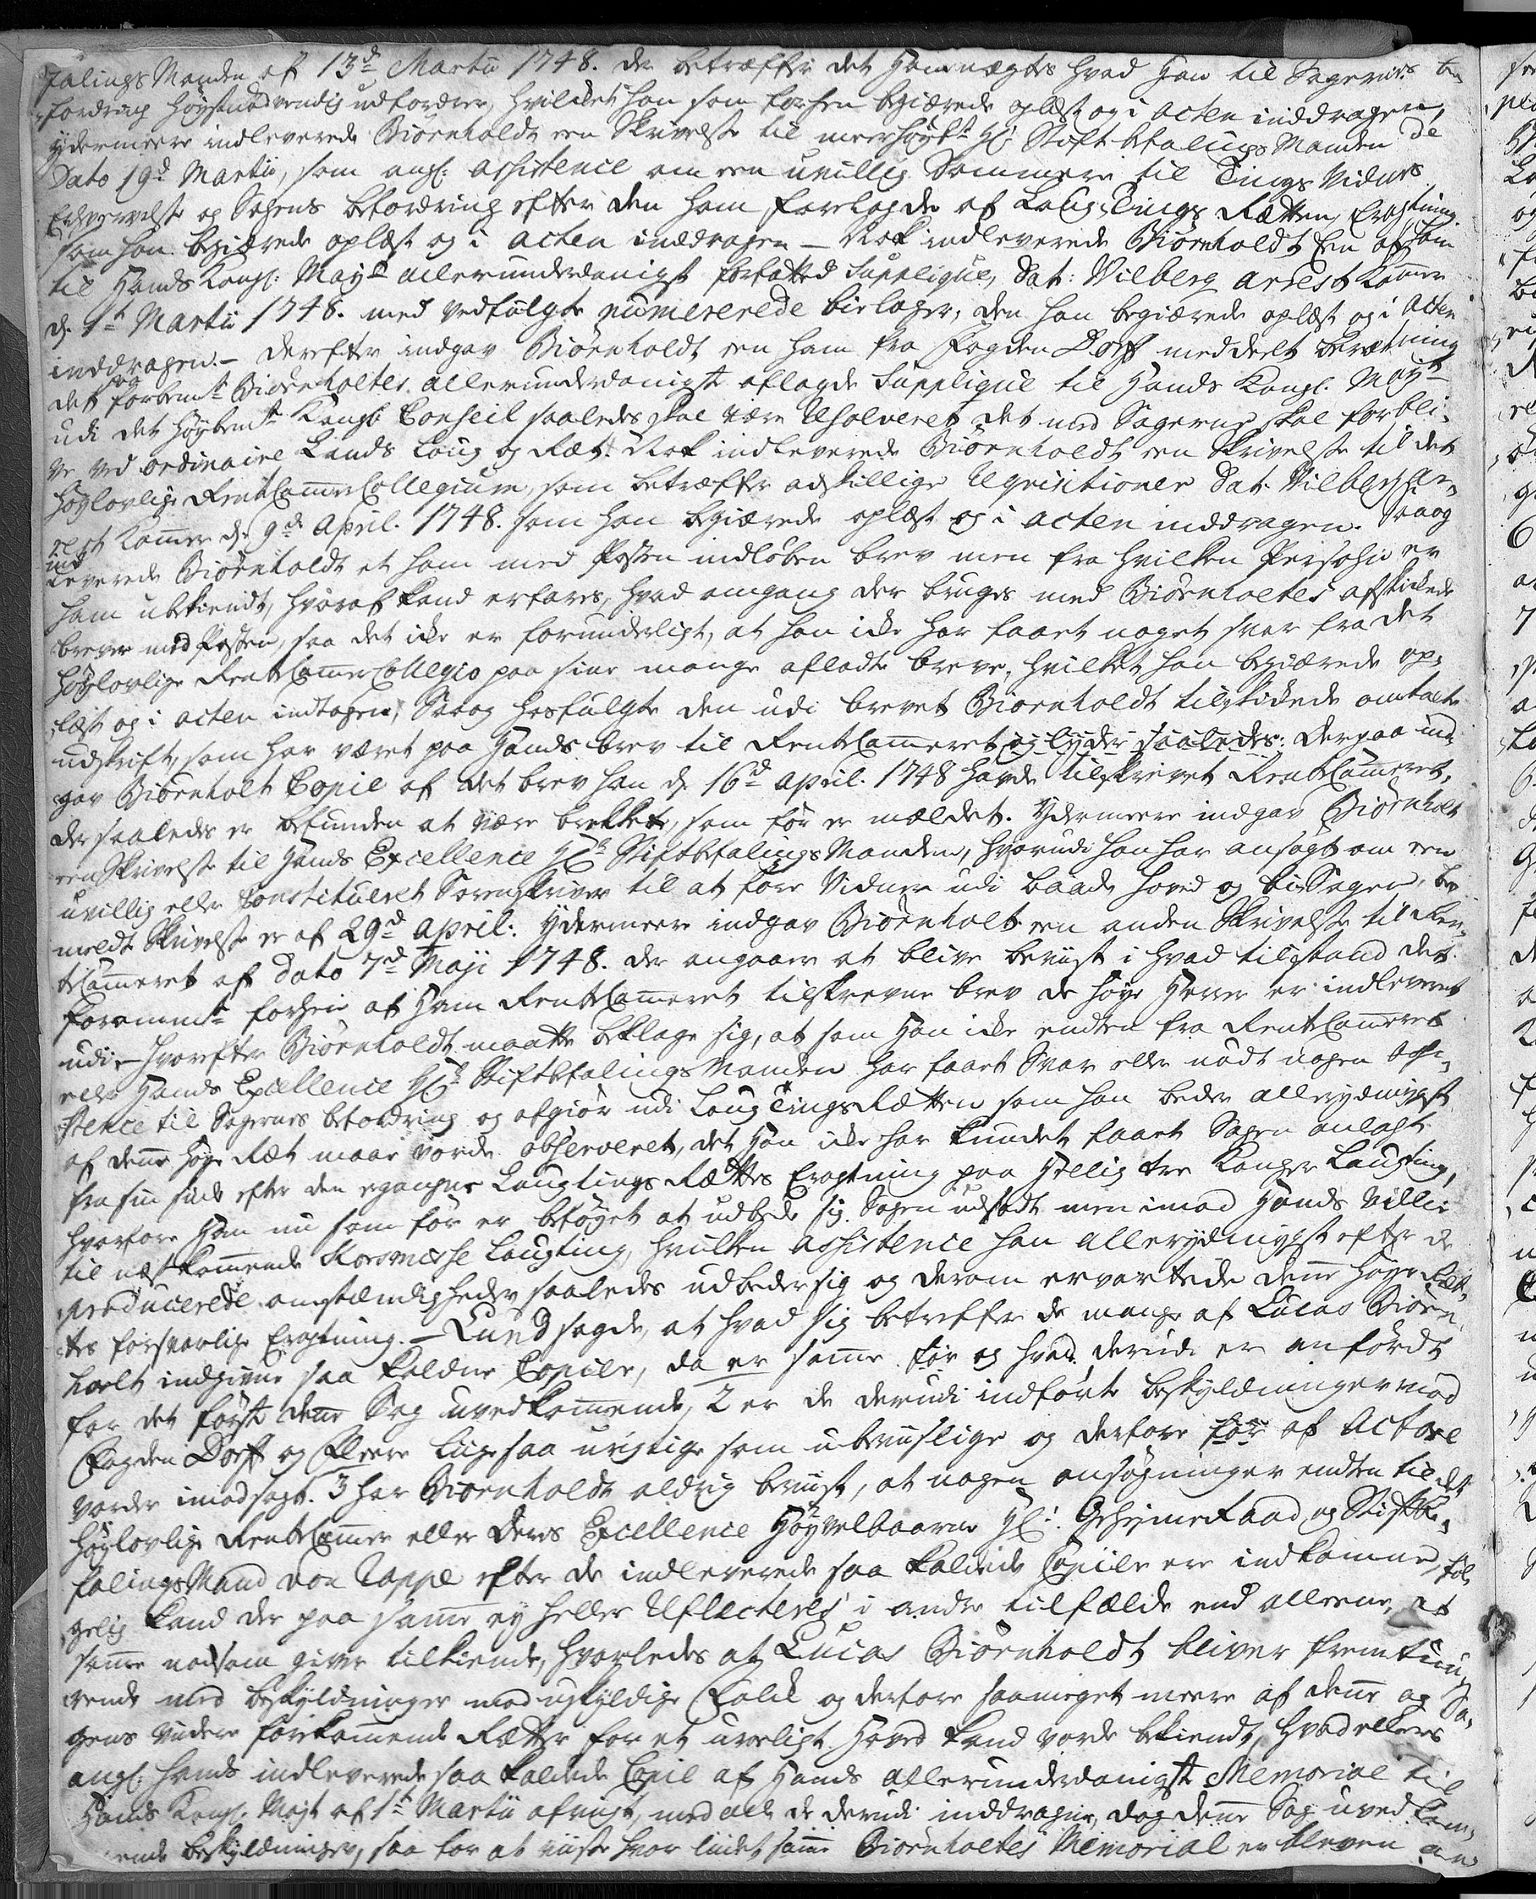 falings Manden af 13d Martii 1748. der betræffer det Ham nægtes hvad han til Sagernes be„
fordring höystnødvendig udfordrer, hvilket han som forhen begiærede oplæst og i acten inddragen,
ydermeere indleverede Biørnholdt een Skrivelse til meerhöybt Hr Stiftbefalings Manden de
Dato 19d Martii, som angl: assistence om een uvillig Dommere til Tings Vidners
Erhvervelse og Sagens befordring efter den ham forelagde af Laug Tings Rætten Eragtning
som han begiærede oplæst og i acten inddragen – Nok indleverede Biørnholdt Een af ham
til Hands Kongl: Mayt allerunderdanigst forfatted Supplique, Dat: Vilberg arrest Kammer
d. 1t Martii 1748. med vedfulgte numererede bielager, den han begiærede oplæst og i acten
inddragen. – Derefter indgav Biørnholdt een ham fra Fogden Dorff meddeelt beretning
det paa forbemte Biørnholtes allerunderdanigste aflagde Supplique til Hands Kongl: Mayt
udi det höybemte Kongl: Conseil saaledes skal være Resolveret det med Sagerne skal forbli„
ve ved ordinaire Lands Laug og Ræt: Nok indleverede Biørnholdt een Skrivelse til det
Höylovlige RentteCammer Collegium, som betræffer adskillige Reqvisitioner Dat. Vilberg Ar„
rest Kammer d. 9d April. 1748. som han begiærede oplæst og i acten inddragen. Saa og
indleverede Biørnholdt et ham med Posten indløben brev men fra hvilken Persohn er
ham ubekiendt, hvoraf kand erfares, hvad omgang der bruges med Biørnholtes afskikkede
breve med Posten, saa det icke er forunderligt, at han icke har faaet noget svar fra det
Höylovlige RentteCammer Collegio paa sine mange afladte breve, hvilket han begiærede op„
læst og i acten indtagen, Saa og hosfulgte den udi brevet Biørnholdt tilskikkede omtalte
udskrift, som har været paa Hands brev til RentteCammeret og lyder saaledes: Derpaa ind„
gav Biørnholt Copie af det brev han d. 16d April. 1748 havde tilskrevet RentteCammeret,
der saaledes er befunden at være brekket, som før er mældet. Ydermeere indgav Biørnholt
een Skrivelse til Hands Excellence Hr Stiftbefalings Manden, hvorudi han har ansøgt om een
uvillig eller Constitueret Sorenskriver til at føre Vidner udi baade hoved og bi Sagen, be„
meldte Skrivelse er af 29d April: Ydermeere indgav Biørnholt een anden Skrivelse til Ren„
teCammeret af Dato 7d Maji 1748. der angaar at blive beviist i hvad tilstand det
foromte forhen af Ham RentteCammeret tilskrevne brev de høye Herrer er indleveret
udi – hvorefter Biørnholdt maatte beklage sig, at som Han icke endten fra RentteCammeret
eller Hands Excellence Hr Stiftbefalings Manden har faaet Svar eller nødt nogen assi„
stence til Sagernes befordring og afgiør udi Laug Tings Rætten som han beder allerydmygst
af denne høye Ræt maae vorde observeret, det Han icke har kundet faaet Sagen anlagt
fra sin side efter den ergangne Laugtings Rættes Eragtning paa Hellig tre Konger Laugting,
hvorfore Han nu som før er beføyet at udbede sig Sagen udsadt men imod Hands Villie
til næstkommende Korsmesse Laugting, hvilken assistence han allerydmygst efter de
producerede omstændigheder saaledes udbeder sig og derom ervartede denne Høye Ræt„
tes forsvarlige Eragtning. – Lund sagde, at hvad sig betreffer de mange af Lucas Biørn„
holt indgivne saa kaldne Copier, da er samme før og hvad derudi er anfördt
for det første denne Sag uvedkommende, 2 er de derudi indførte beskyldninger mod
Fogden Dorff og Fleere liige saa urigtige som ubeviislige og derfore før af Actore
vorder imodsagt. 3 har Biørnholdt aldrig beviist, at nogen ansøgninger endten til det
Höylovlige RentteCammer eller Deres Excellence Høyvelbaarne Hr: Geheime Raad og Stiftbe„
falings Mand von Rappe efter de indleverede saa kaldede Copier ere indkomne, føl„
gelig kand der paa samme ey heller Reflecteres i andre tilfælde end alleene, at
samme noksom giver tilkiende, hvorledes at Lucas Biørnholdt bliver fremtuu„
rende med beskyldninger mod uskyldige Folk og derfore saameget meere af denne og Sa„
gens videre forekommende Rætter for et uroeligt Hoved kand vorde bekiendt, hvad ellers
angl: hands indleverede saa kaldede Copie af Hands allerunderdanigste Memorial til
Hands Kongl: Mayt af 1t Martii afvigt, med alle de derudi inddragne, dog denne Sag uvedkom„
mende beskyldninger, saa for at viise hvor liidet samme Biørnholtes Memorial er bleven an„